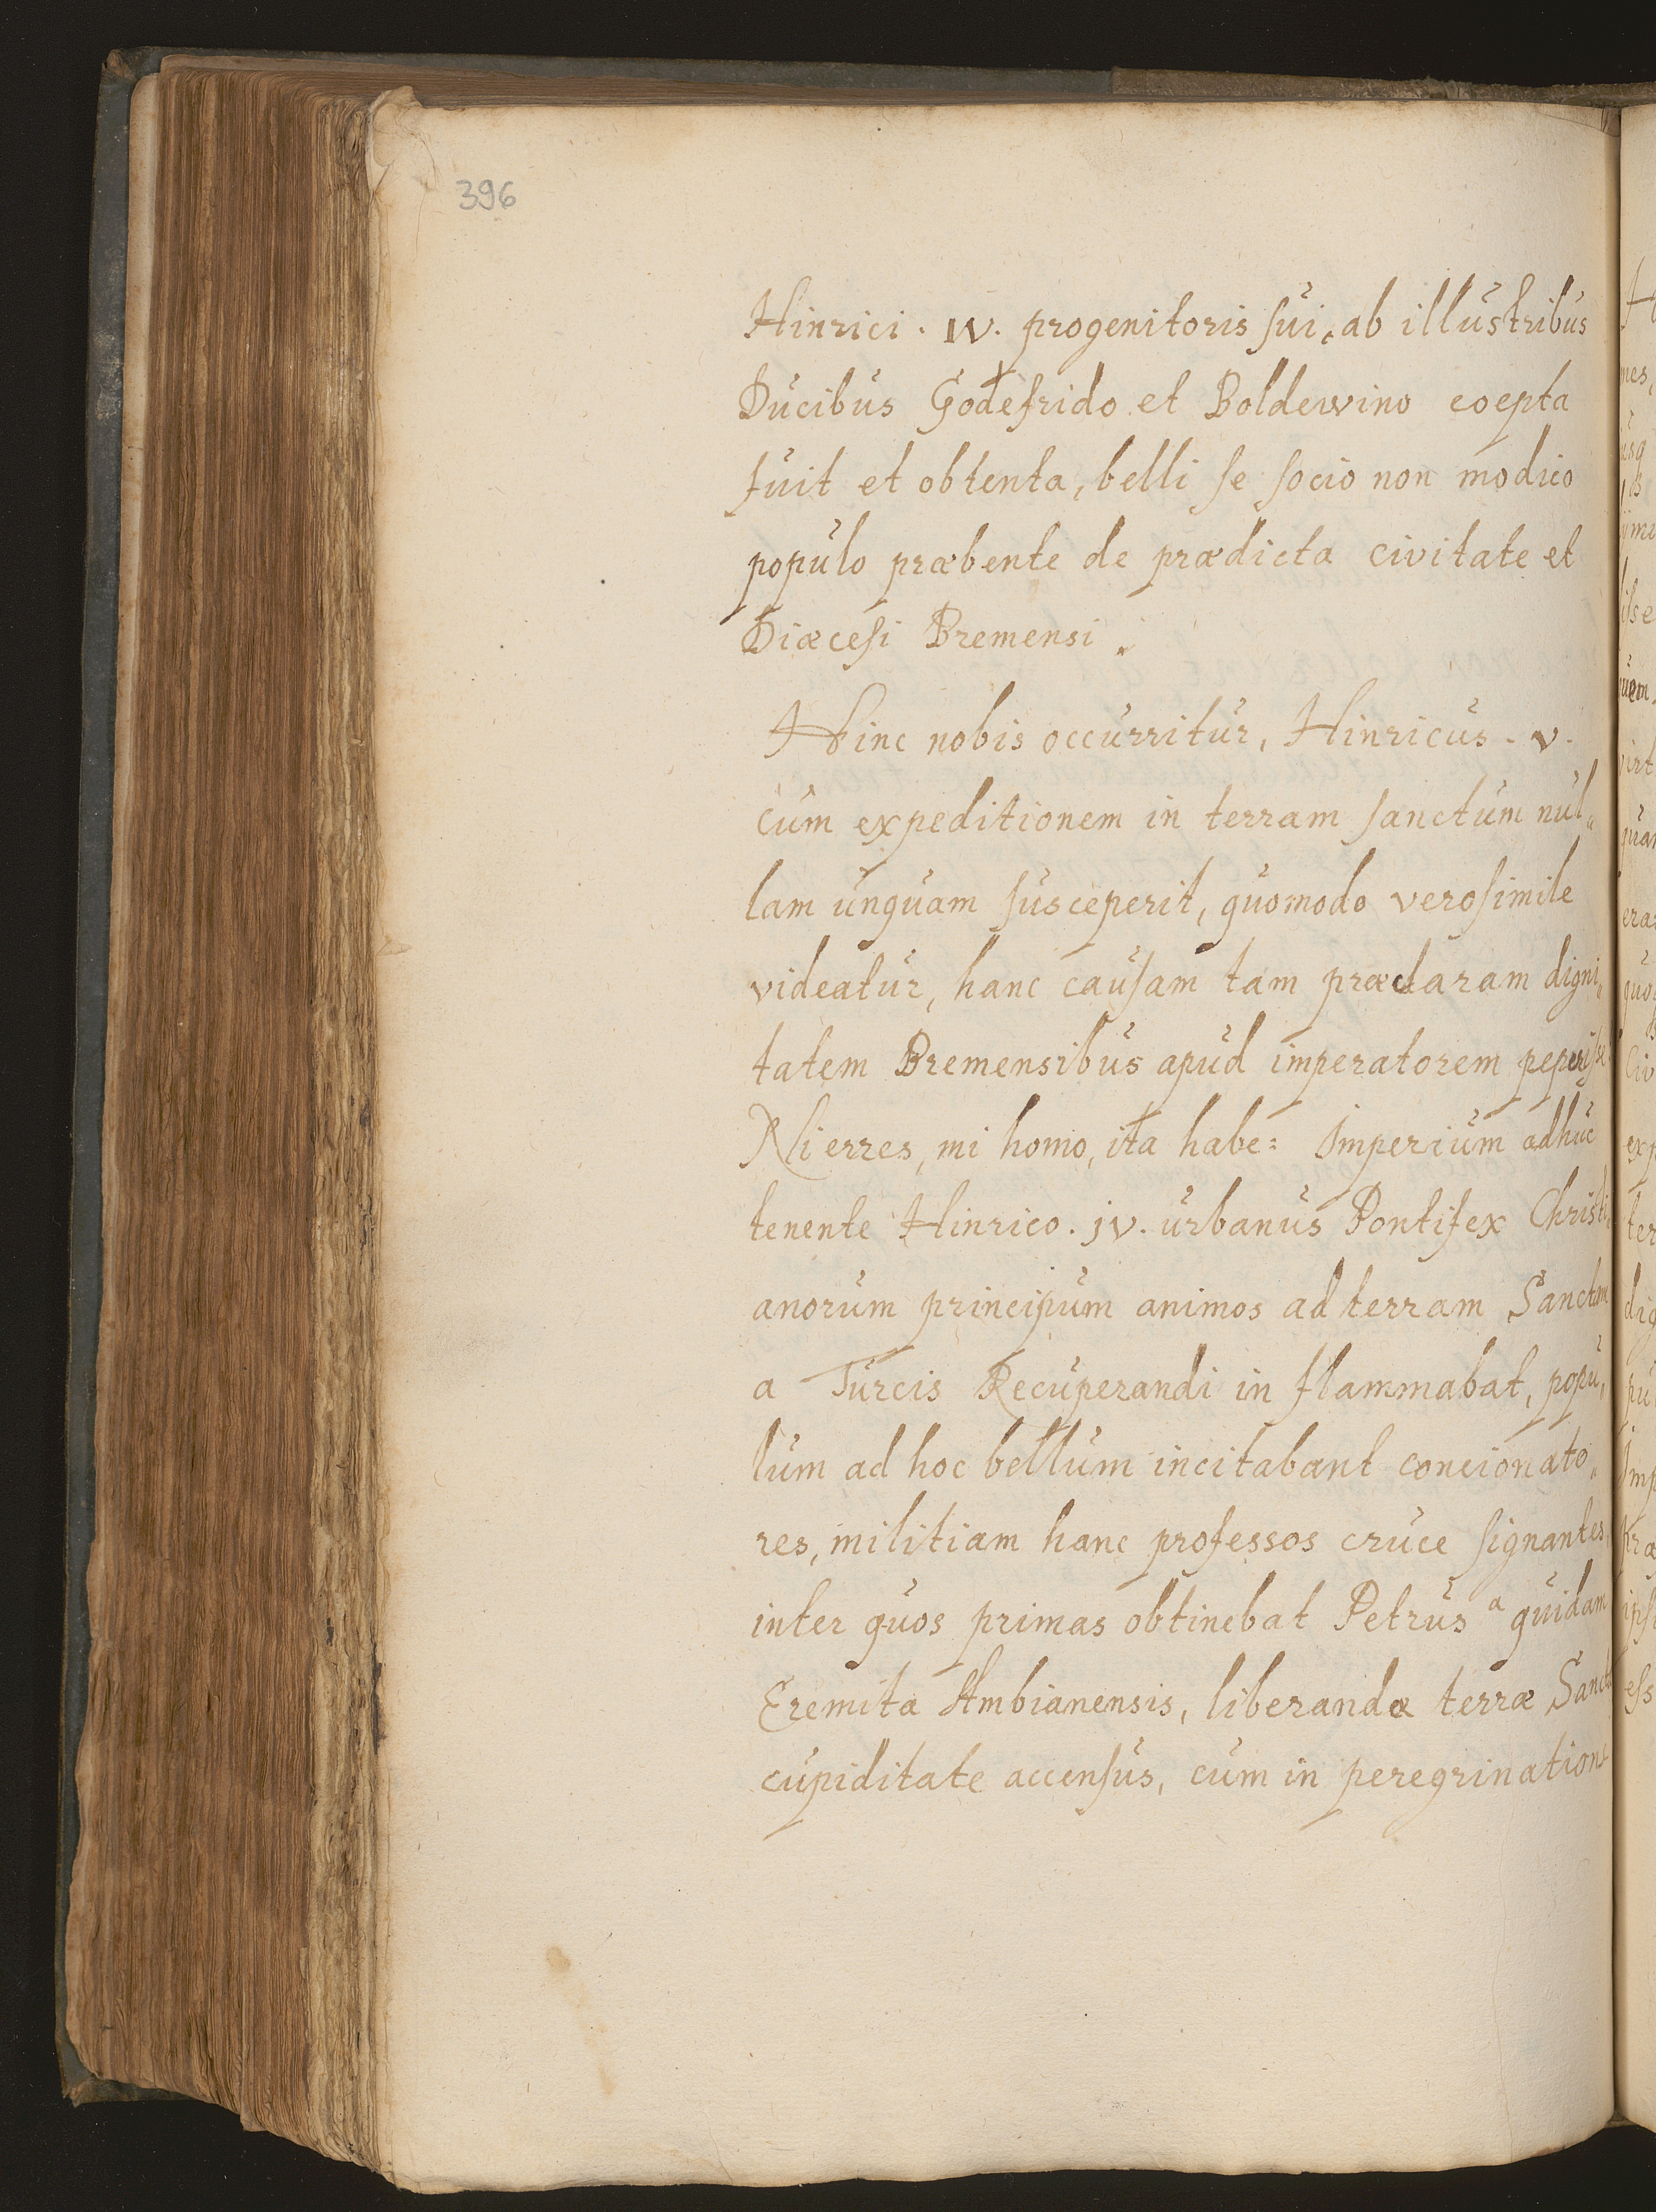 396
Hinrici. IV. progenitoris sui, ab illustribus
Ducibus Godefrido et Boldewino coepta
fuit et obtenta, belli se socio non modico
populo præbente de prædicta civitate et
Diæcesi Bremensi.
Hinc nobis occurritur, Hinricus. v.
cum expeditionem in terram sanctum nul„
lam unquam susceperit, quomodo verosimile
videatur, hanc causam tam præclaram digni„
tatem Bremensibus apud imperatorem peperisse
Ni erres, mi homo, ita habe: Imperium adhuc
tenente Hinrico. jv. urbanus Pontifex Christi
anorum principum animos ad terram Sanctam
a Turcis Recuperandi in flammabat, popu„
lum ad hoc bellum incitabant concionato„
res, militiam hanc professos cruce signantes,
inter quos primas obtinebat Petrus a quidam
Eremita Ambianensis, liberandæ terræ Sanctæ
cupiditate accensus, cum in peregrinatione